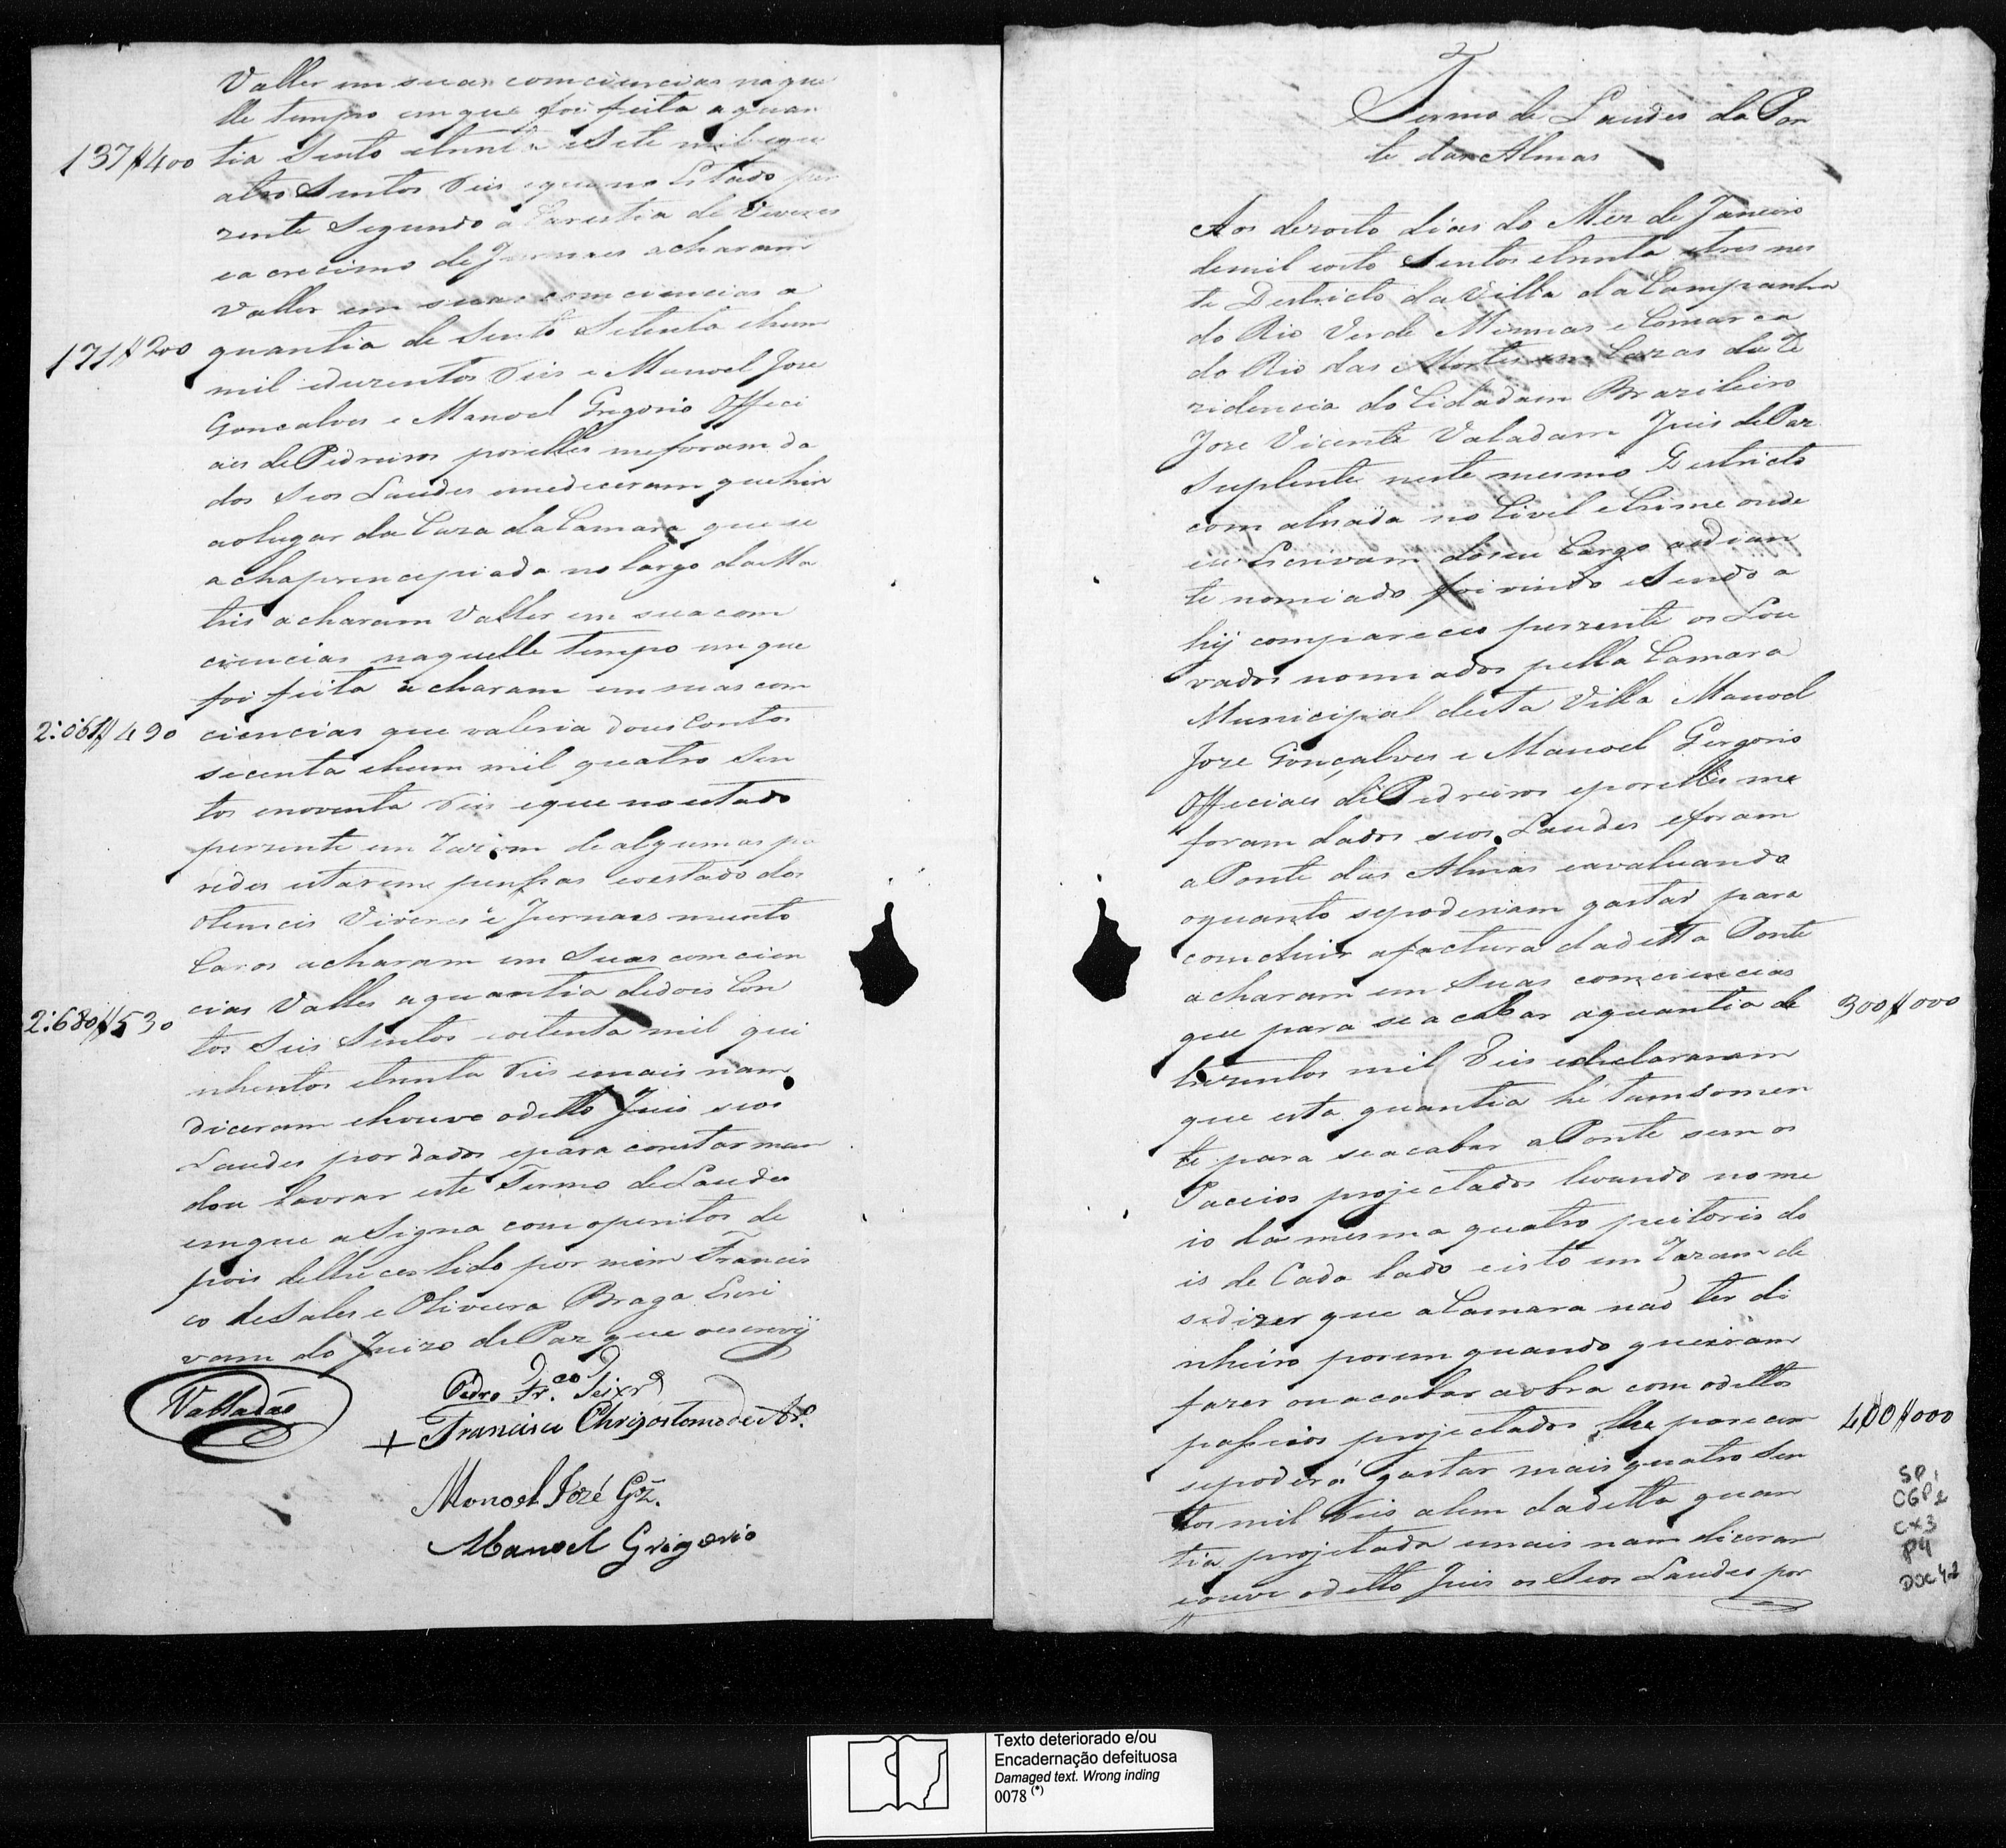 Valler em suas comciencias naque
lle tempo em que foi feita a quan
137$400 tia Sento etrinta eSete mil equ
atro Sentos Reis eque no Estado per
zente Segundo a Carestia de Viveres
ea crecimo de Jornaes acharam
Valler em suas comciencias a
171$200 quantia de Sento Setenta ehum
mil eduzentos Reis e Manoel Joze
Goncalves e Manoel Gregorio Offeci
aes de Pedreiros porelles meforam da
dos Seos Laudes emediceram quehin
aolugar da Caza da Camara que se
achaprencepiada no largo da Ma
tris acharam Valler em sua com
ciencias naquelle tempo em que
foi feita acharam em suas com
2:061$490 ciencias que valeria dous Contos
secenta ehum mil quatro Sen
tos enoventa Reis eque no estado
perzente em Razam de algumas pa
redes estarem penssas eoestado dos
Olenceis Viveres e Jurnaes muinto
Caros acharam em Suas comcien
cias Valler aquantia dedois Con
2:680$530 tos Seis Sentos eoitenta mil qui
nhentos etrinta Reis emais nam
diceram ehouve odetto Juis seos
Laudes por dados epara constar man
dou lavrar este Termo de Laudes
emque aSigna com operitos de
pois delhe ser lido por mim Francis
co deSales e Oliveira Braga Escri
vam do Juizo de Paz que oescrevy
Valladão
Pedro Fr.co Teixr.a
+ Francisco Chrizostomo de Ar.o
Manoel Jozé Glz.
Manoel Grigorio
Termo de Laudes da Pon
te das Almas
Aos dezoito dias do Mez de Janeiro
demil eoito Sentos etrinta etres nes
te Destricto da Villa da Campanha
do Rio Verde Minnas e Comarca
do Rio das Mortes em Cazas da Re
zidencia do Cidadam Brazileiro
Joze Vicente Valadam Juis de Paz
Suplente neste mesmo Destricto
com alsada no Civel eCrime onde
eu Escrivam doseu Cargo adian
te nomiado foi vindo eSendo a
hij compareceo perzente os Lou
vados nomiados pella Camara
Municipal desta Villa Manoel
Joze Gonçalves e Manoel Gergorio
Officiaes de Pedreiros eporelles me
foram dados seos Laudes eforam
a Ponte das Almas eavaluando
oquanto sepoderiam gastar para
comcluir afactura dadetta Ponte
acharam em Suas comciencias
que para se acabar aquantia de 300$000
trezentos mil Reis edeclararam
que esta quantia hé tamsomen
te para seacabar a Ponte sem os
Paceios projectados levando no me
io da mesma quatro peitoris do
is de Cada lado eisto em Razam de
sedizer que a Camara não ter di
nheiro porem quando queiram
fazer ou acabar aobra com odettos
passeios projectados lhe parecem 400$000
sepoderá gastar mais quatro Sen
tos mil Reis alem dadetta quan
tia projetada emais nam diceram
eouve odetto Juis os Seos Laudes por
SP1
CGP2
CX3
P4
DOC 42
Texto deteriorado e/ou
Encadernação defeituosa
Damaged text. Wrong inding
0078 (*)